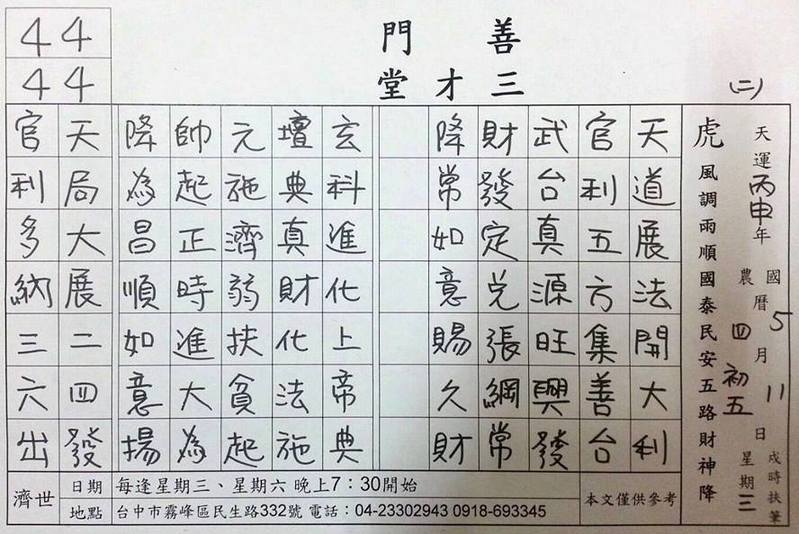 善門
三才堂
(二)
天運丙申年 農四初五
國曆5月11日 星期三
戌時扶筆
虎風調雨順國泰民安五路財神降
天道展法開大利
官利五方集善台
武台真源旺興發
財發定兌張綱常
降常如意賜久財
玄科進化上帝典
壇典真財化法施
元施濟弱扶貧起
帥起正時進大為
降為昌順如意揚
44
44
天局大展二四發
官利多納三六出
濟世
日期 每逢星期三、星期六 晚上7：30開始
地點 台中市霧峰區民生路332號 電話：04-23302943 0918-693345
本文僅供參考